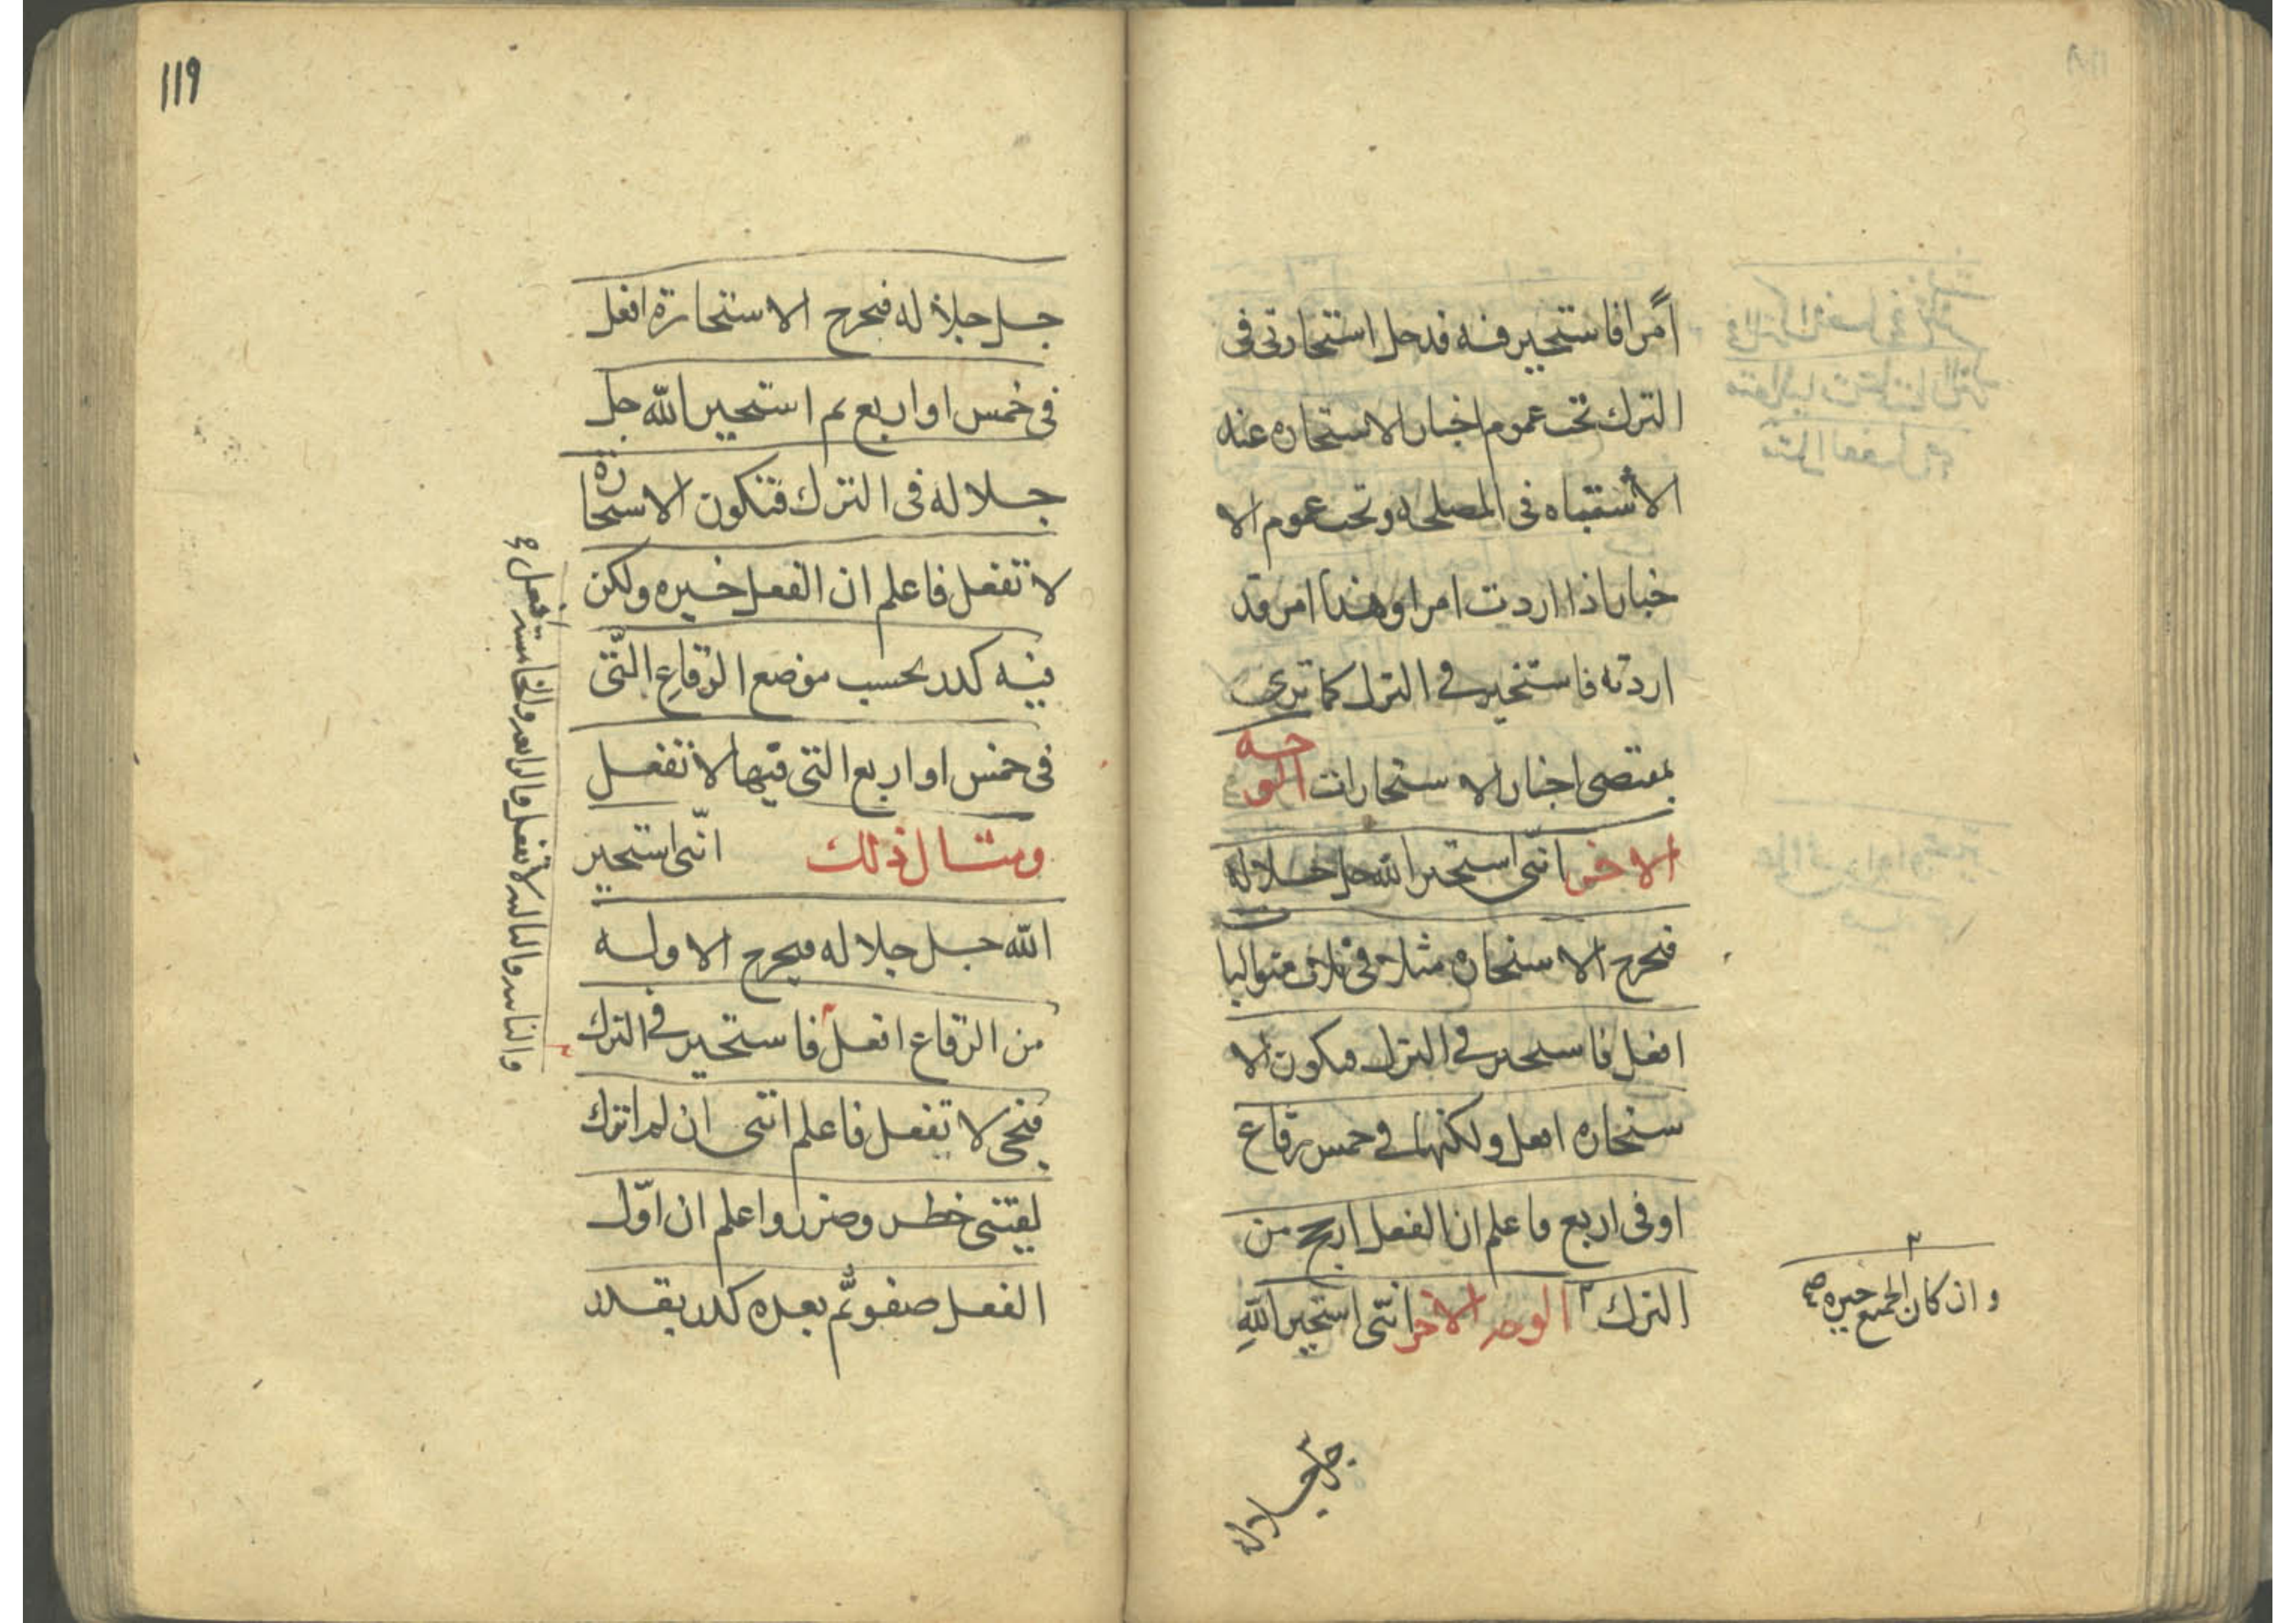 أمرا فاستخير فيه فدخل استخارتي في
الترك تحت عموم اخبار الاستخاره عند
الاشتباه في المصلحه وتحت عموم الا
خبار اذا اردت امرا وهذا امر قد
اردته فاستخير في الترك كما ترى
بمقتضى اخبار الاستخارات الوجه
الاخر انني استخير الله جل جلاله
فتخرج الاستخاره مثلا في ثلاث متواليا
ت
افعل فاستخير في الترك فتكون الا
ستخاره افعل ولكنها في خمس رقاع
او في اربع فاعلم ان الفعل ارجح من
الترك ٣ الوجه الاخر انني استخير الله
٣
وان كان الجميع خيره صح
جل جلاله
١١٩
جل جلاله فتخرج الاستخارة افعل
في خمس او اربع ثم استخير الله جل
جلاله في الترك فتكون الاستخارة
لا تفعل فاعلم ان الفعل خيره ولكن
فيه كدر بحسب موضع الرقاع التي
في خمس او اربع التي فيها لا تفعل
ومثال ذلك انني استخير
الله جل جلاله فيخرج الاوله
من الرقاع افعل فاستخير في الترك
فتجى لا تفعل فاعلم انني ان لم اترك
لقيتني خطر وضرر واعلم ان اول
الفعل صفو ثم بعده كدر بقدر
والثانيه والثالثه لا تفعل والرابعه والخامسه افعل